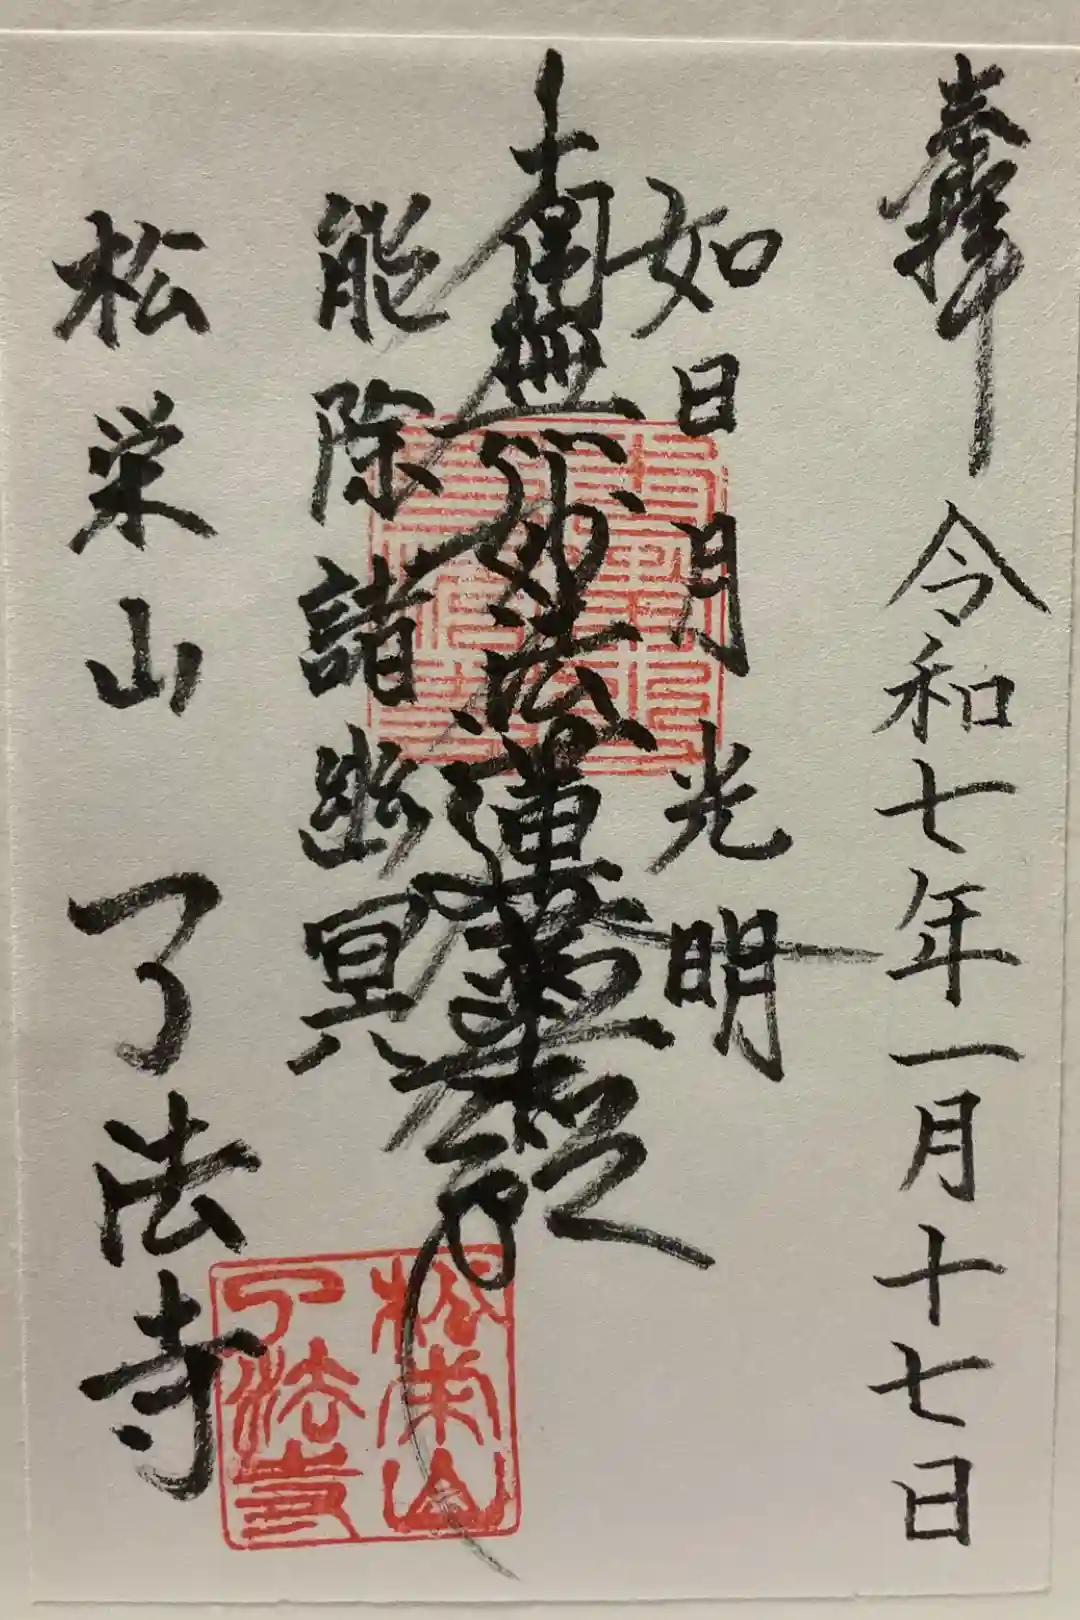 奉拝 令和七年一月十七日
如日月光明
南無妙法蓮華経
能除諸幽冥
松栄山 了法寺
松栄山
了法寺